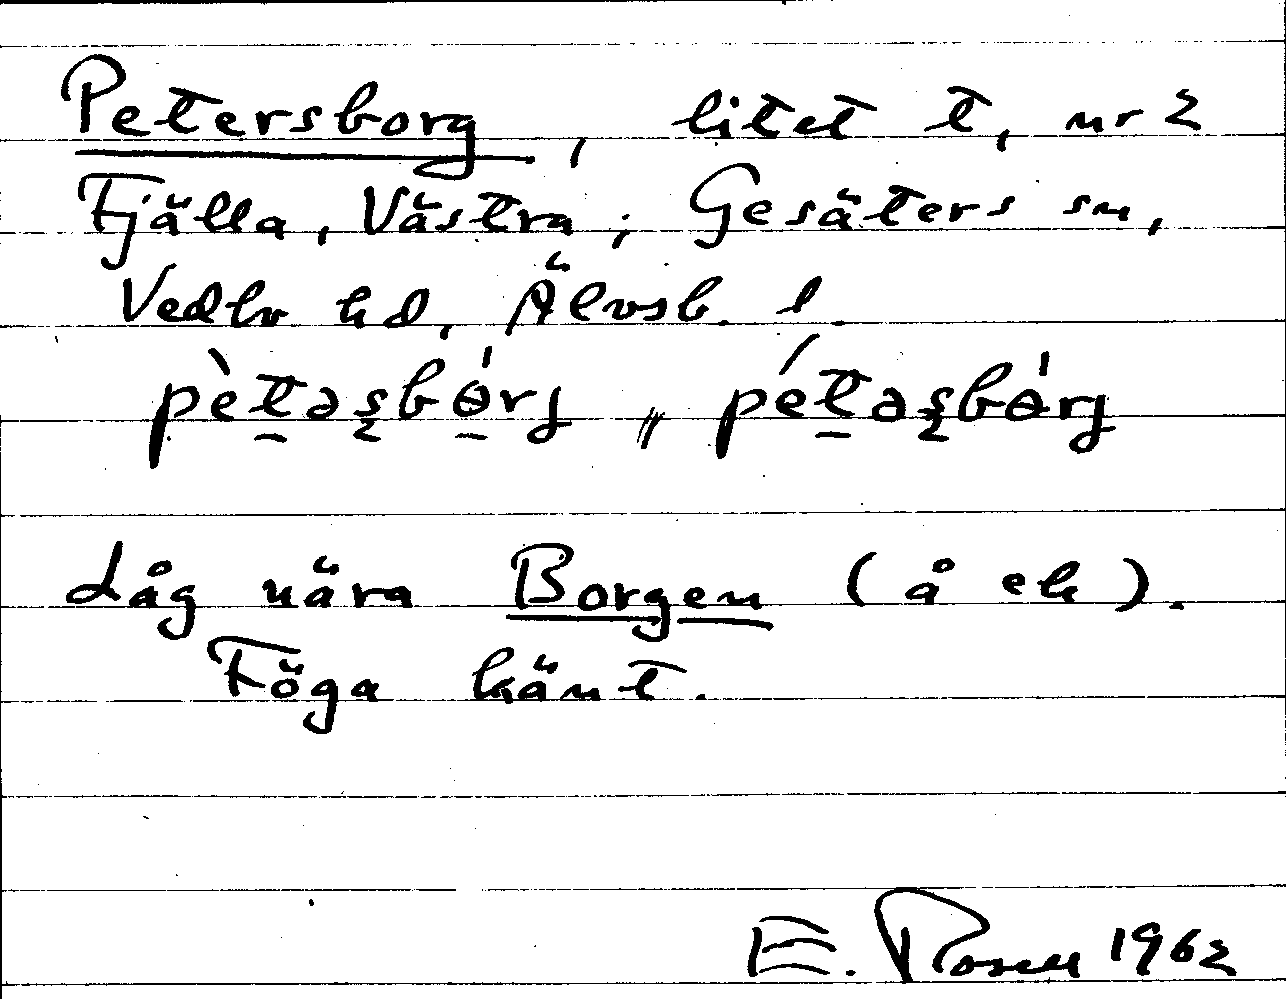 Petersborg, litet t, nr 2
Fjälla, Västra; Gesäters sn,
Vedbo hd, Älvsb. l.
pètəʂbɵ́rj // pétəʂbɵ́rj
Låg nära Borgen (å ek).
Föga känt.
E. Rosell 1962